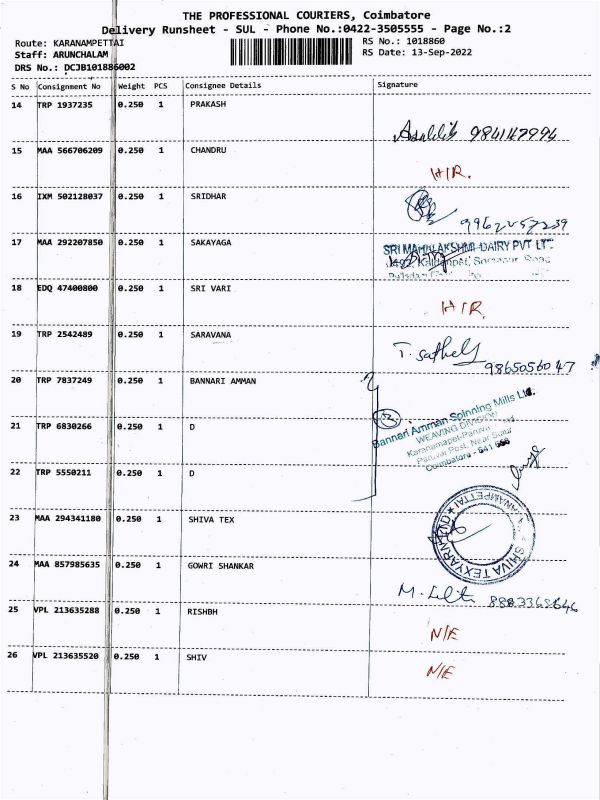 THE PROFESSIONAL COURIERS, Coimbatore
Delivery Runsheet - SUL - Phone No.:0422-3505555 - Page No.:2
Route: KARANAMPETTAI
RS No.: 1018860
Staff: ARUNCHALAM
RS Date: 13-Sep-2022
DRS No.: DCJB101886002
S No Consignment No Weight PCS Consignee Details Signature
14 TRP 1937235 0.250 1 PRAKASH
9841147994
15 MAA 566706209 0.250 1 CHANDRU
H/R.
16 IXM 502128037 0.250 1 SRIDHAR
17 MAA 292207850 0.250 1 SAKAYAGA
SRI MAHALAKSHMI DAIRY PVT LT
18 EDQ 47400800 0.250 1 SRI VARI
H/R.
19 TRP 2542489 0.250 1 SARAVANA
9865056047
20 TRP 7837249 0.250 1 BANNARI AMMAN
Bannari Amman Spinning Mills Ltd.
WEAVING DIVISION
21 TRP 6830266 0.250 1 D
Post, Near Sulur
Coimbatore - 641
22 TRP 5550211 0.250 1 D
23 MAA 294341180 0.250 1 SHIVA TEX
SHIVA TEXYARN
24 MAA 857985635 0.250 1 GOWRI SHANKAR
8883365646
25 VPL 213635288 0.250 1 RISHBH
N/E
26 VPL 213635520 0.250 1 SHIV
N/E